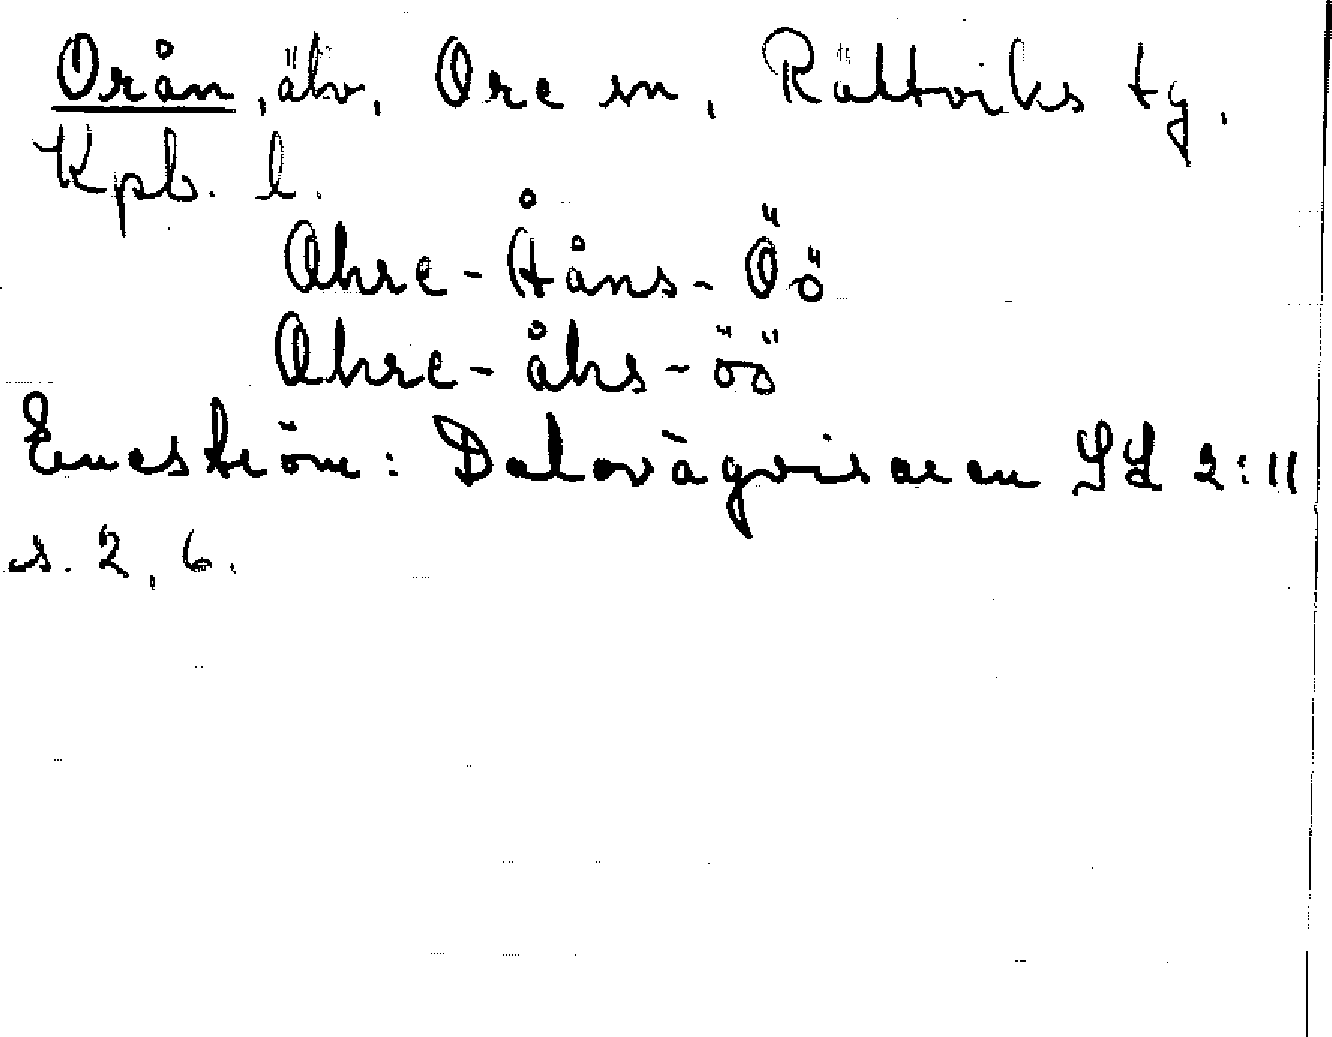 Orån, älv, Ore sn, Rättviks tg,
Kpb. l.
Ohre-Ååns-Öö
Ohre-åhs-öö
Eneström: Dalavägvisaren SL 2:11
s. 2, 6.